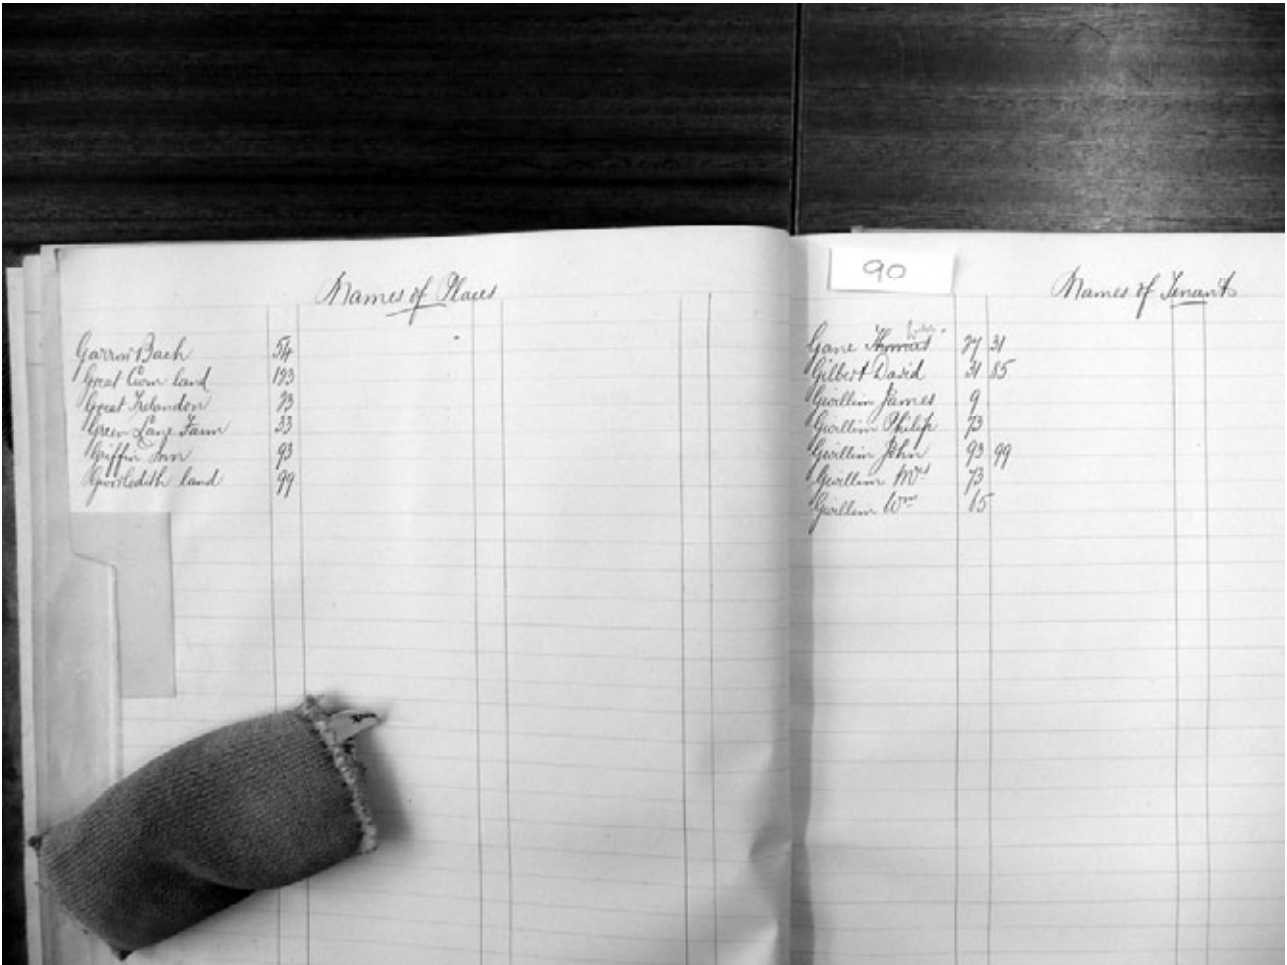 Names of Places
Garrow Bach 54
Great Cwm land 193
Great Trelandon 73
Green Lane Farm 33
Griffin Inn 93
land 99
90
Names of Tenants
Wm.
Gane Thomas 77 31
Gilbert David 31 85
Gwillim James 9
Gwillim Philip 73
Gwillim John 93 99
Gwillim Mrs 73
Gwillim Wm